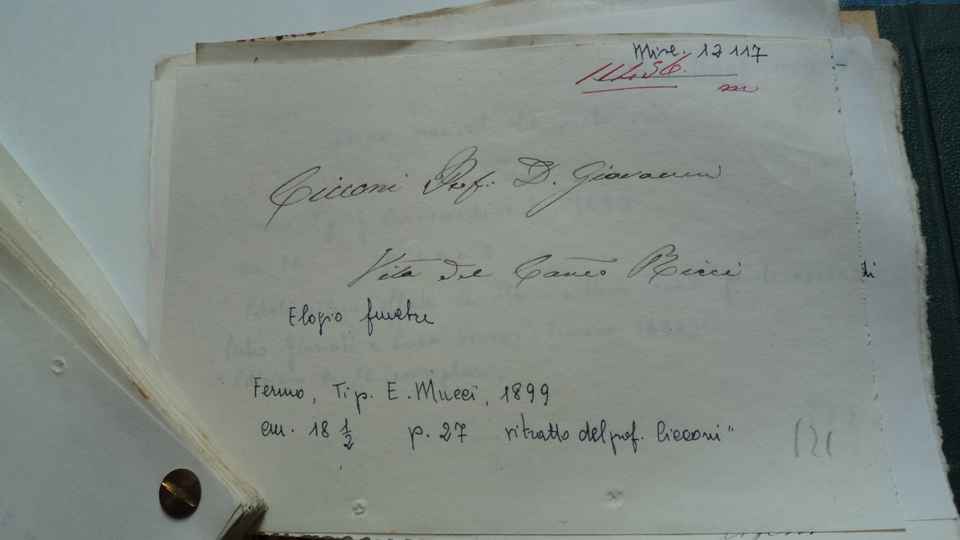 Misc. 12117
Cicconi Prof. D. Giovanni
Vita del Canco Ricci
Elogio funebre
Fermo, Tip. E. Mucci, 1899
cm. 18 1/2 p. 27 ritratto del prof. Cicconi"